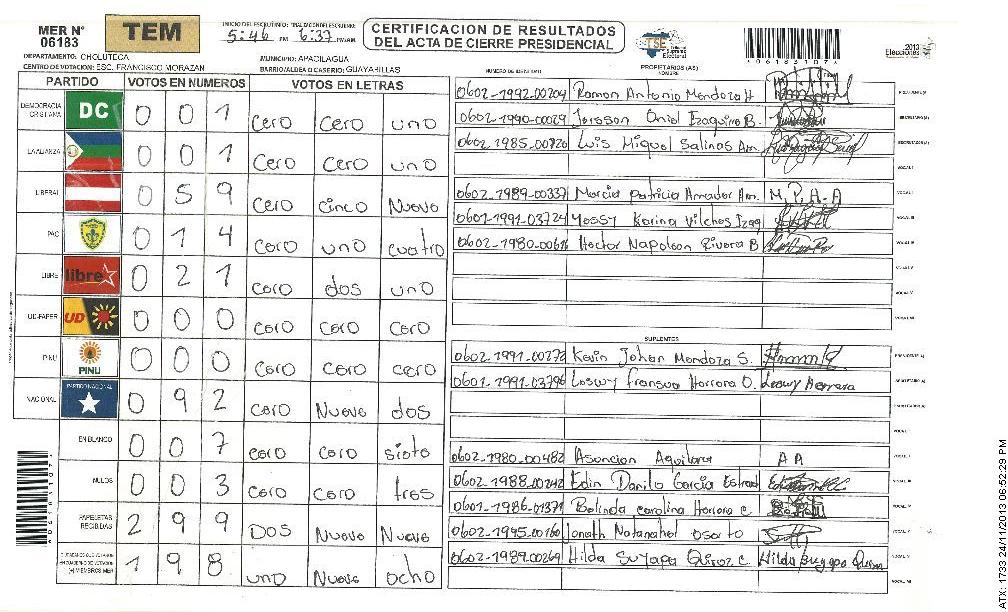 MER N° 06183
TEM
INICIO DEL ESCRUTINIO: 5:46 PM FINALIZACION DEL ESCRUTINIO: 6:37 PM/AM
CERTIFICACION DE RESULTADOS DEL ACTA DE CIERRE PRESIDENCIAL
TSE Tribunal Supremo Electoral
Elecciones 2013
DEPARTAMENTO: CHOLUTECA
MUNICIPIO: APACILAGUA
CENTRO DE VOTACION: ESC. FRANCISCO MORAZAN
BARRIO/ALDEA O CASERIO: GUAYABILLAS
PARTIDO VOTOS EN NUMEROS VOTOS EN LETRAS
DEMOCRACIA CRISTIANA DC 0 0 1 Cero Cero uno
LA ALIANZA 0 0 1 Cero Cero uno
LIBERAL 0 5 9 Cero cinco Nuevo
PAC 0 1 4 Cero uno cuatro
LIBRE libre 0 2 1 Cero dos uno
UD-FAPER UD 0 0 0 Cero Cero Cero
PINU PINU 0 0 0 Cero Cero cero
NACIONAL PARTIDO NACIONAL 0 9 2 Cero Nueve dos
EN BLANCO 0 0 7 Cero Cero siete
NULOS 0 0 3 Cero Cero tres
PAPELETAS RECIBIDAS 2 9 9 DOS Nueve Nueve
1 9 8 uno Nueve ocho
NUMERO DE IDENTIDAD PROPIETARIOS (AS) NOMBRE
0602-1992-00204 Ramon Antonio Mendoza H
0602-1990-00029 Jorsson Oniel Izaguirre B.
0602-1985-00720 Luis Miguel Salinas Am.
0602-1989-00337 Marcia Patricia Amador Am. M.P.A-A
0601-1991-03724 Yessy Karina Vilches Izag
0602-1980-00616 Hector Napoleon Rivera B
SUPLENTES
0602-1991-00272 Kevin Johan Mendoza S.
0601-1991-03796 Loswy Fransua Herrera O. Loswy Herrera
0602-1980-00482 Asuncion Aguilera A A
0602-1988-00242 Edin Danilo Garcia Estrad
0601-1986-01371 Belinda carolina Herrera c.
0602-1945-00160 Jonath Natanahel Osorto
0602-1989-00269 Hilda Suyapa Quiroz c. Hilda Suyapa Quiroz
ATX: 1733 24/11/2013 06:52:29 PM